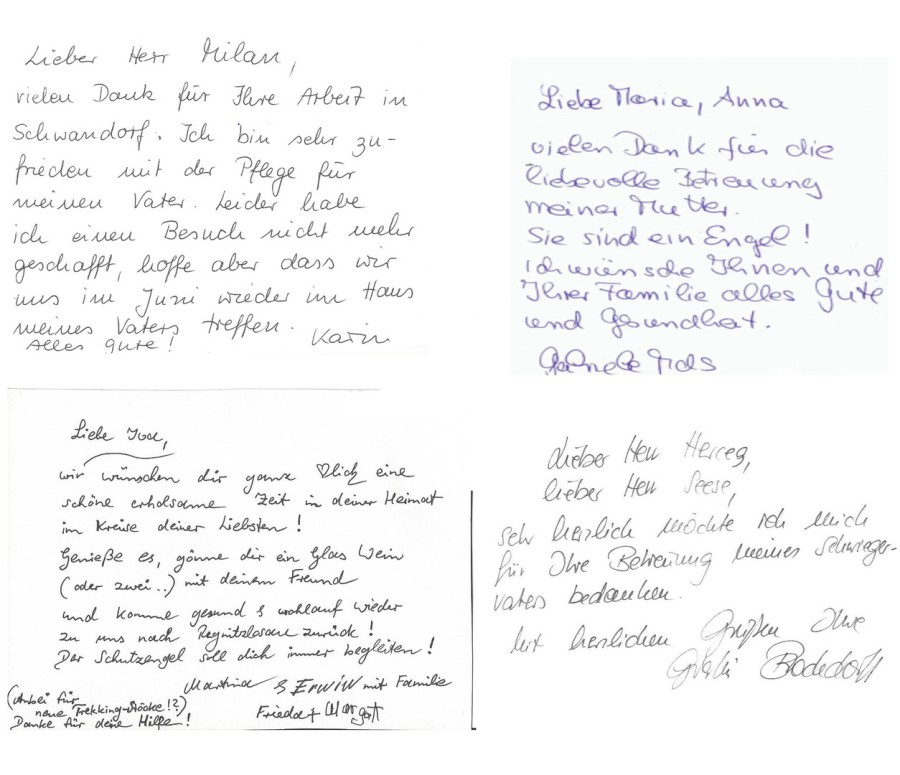 Lieber Herr Milan,
vielen Dank für Ihre Arbeit in
Schwandorf. Ich bin sehr zu-
frieden mit der Pflege für
meinen Vater. Leider habe
ich einen Besuch nicht mehr
geschafft, hoffe aber dass wir
uns im Juni wieder im Haus
meines Vaters treffen.
Alles gute! Karin
Liebe Maria, Anna
vielen Dank für die
liebevolle Betreuung
meiner Mutter.
Sie sind ein Engel!
Ich wünsche Ihnen und
Ihrer Familie alles Gute
und Gesundheit.
Liebe
wir wünschen dir ganz ♡lich eine
schöne erholsame Zeit in deiner Heimat
im Kreise deiner Liebsten!
Genieße es, gönne dir ein Glas Wein
(oder zwei..) mit deinem Freund
und komme gesund & wohlauf wieder
zu uns nach Regnitzlosau zurück!
Der Schutzengel soll dich immer begleiten!
Martina & Erwin mit Familie
Friedolf Margott
(Anbei für
neue Trekking-Stöcke!?)
Danke für deine Hilfe!
Lieber Herr Herceg,
lieber Herr Seese,
sehr herzlich möchte ich mich
für Ihre Betreuung meines Schwieger-
vaters bedanken.
Mit herzlichen Grüßen Ihre